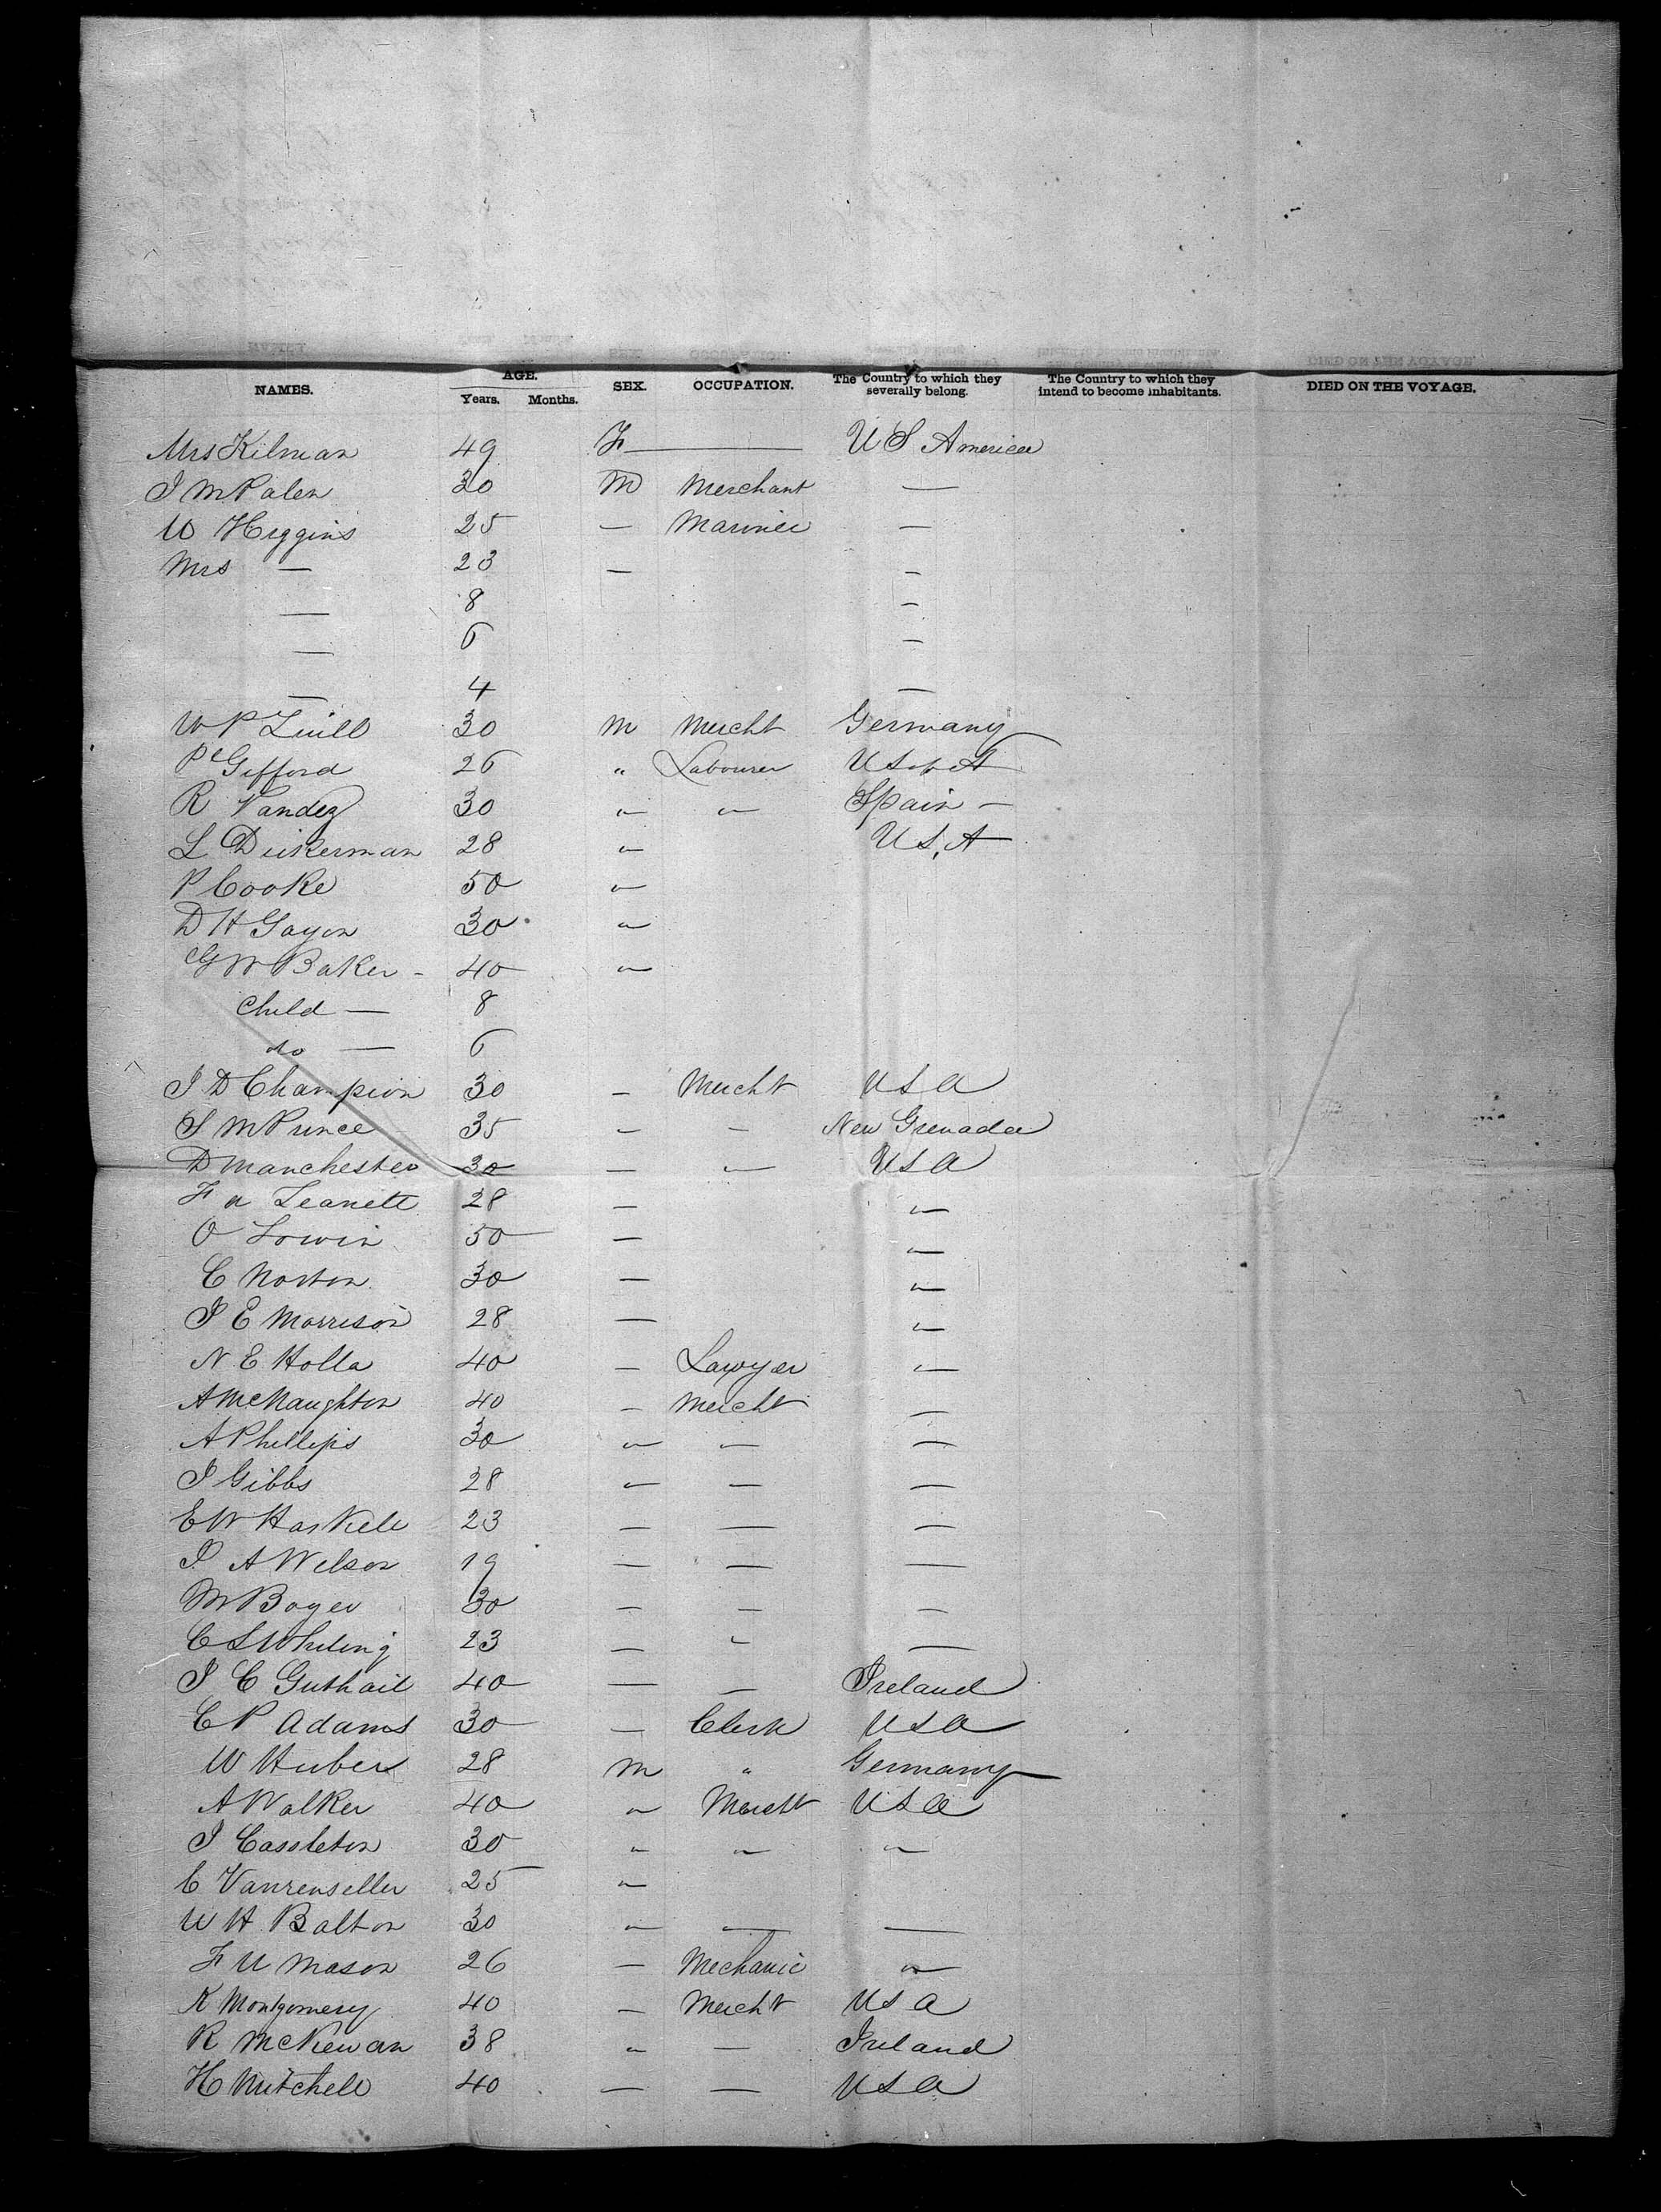 NAMES. AGE. Years. Months. SEX. OCCUPATION. The Country to which they severally belong. The Country to which they intend to become inhabitants. DIED ON THE VOYAGE.
Mrs Kilman 49 F — U S America
J M Palen 30 M Merchant —
W Higgins 25 — Mariner —
Mrs — 23 — —
— 8 —
— 6 —
— 4 —
W P Zuill 30 M Mercht Germany
P Gifford 26 " Labourer U S of A
R Vandez 30 " " Spain —
L Dickerman 28 " U S, A
P Cooke 50 "
D H Gayon 30 "
G W Baker - 40 "
Child — 8
do — 6
J D Champion 30 — Mercht U S A
S M Prince 35 — — New Grenada
D Manchester 30 — — U S A
F A Leanett 28 — "
O Lowin 50 — "
C Norton 30 — "
J E Morrison 28 — "
N E Holla 40 — Lawyer "
A McNaughton 40 — Mercht —
A Phillips 30 " — —
J Gibbs 28 " — —
E W Haskell 23 — — —
J. A Wilson 19 — — —
M Boyer 30 — — —
C S Whiting 23 — — —
J C Guthail 40 — — Ireland
C P Adams 30 — Clerk U S A
W Huber 28 M " Germany
A Walker 40 " Mercht U S A
J Cassleton 30 " " "
C Vanrenseller 25 "
W H Balton 30 " — —
F U Mason 26 — Mechanic "
K Montgomery 40 — Mercht U S A
R McKewan 38 " — Ireland
H Mitchell 40 — — U S A